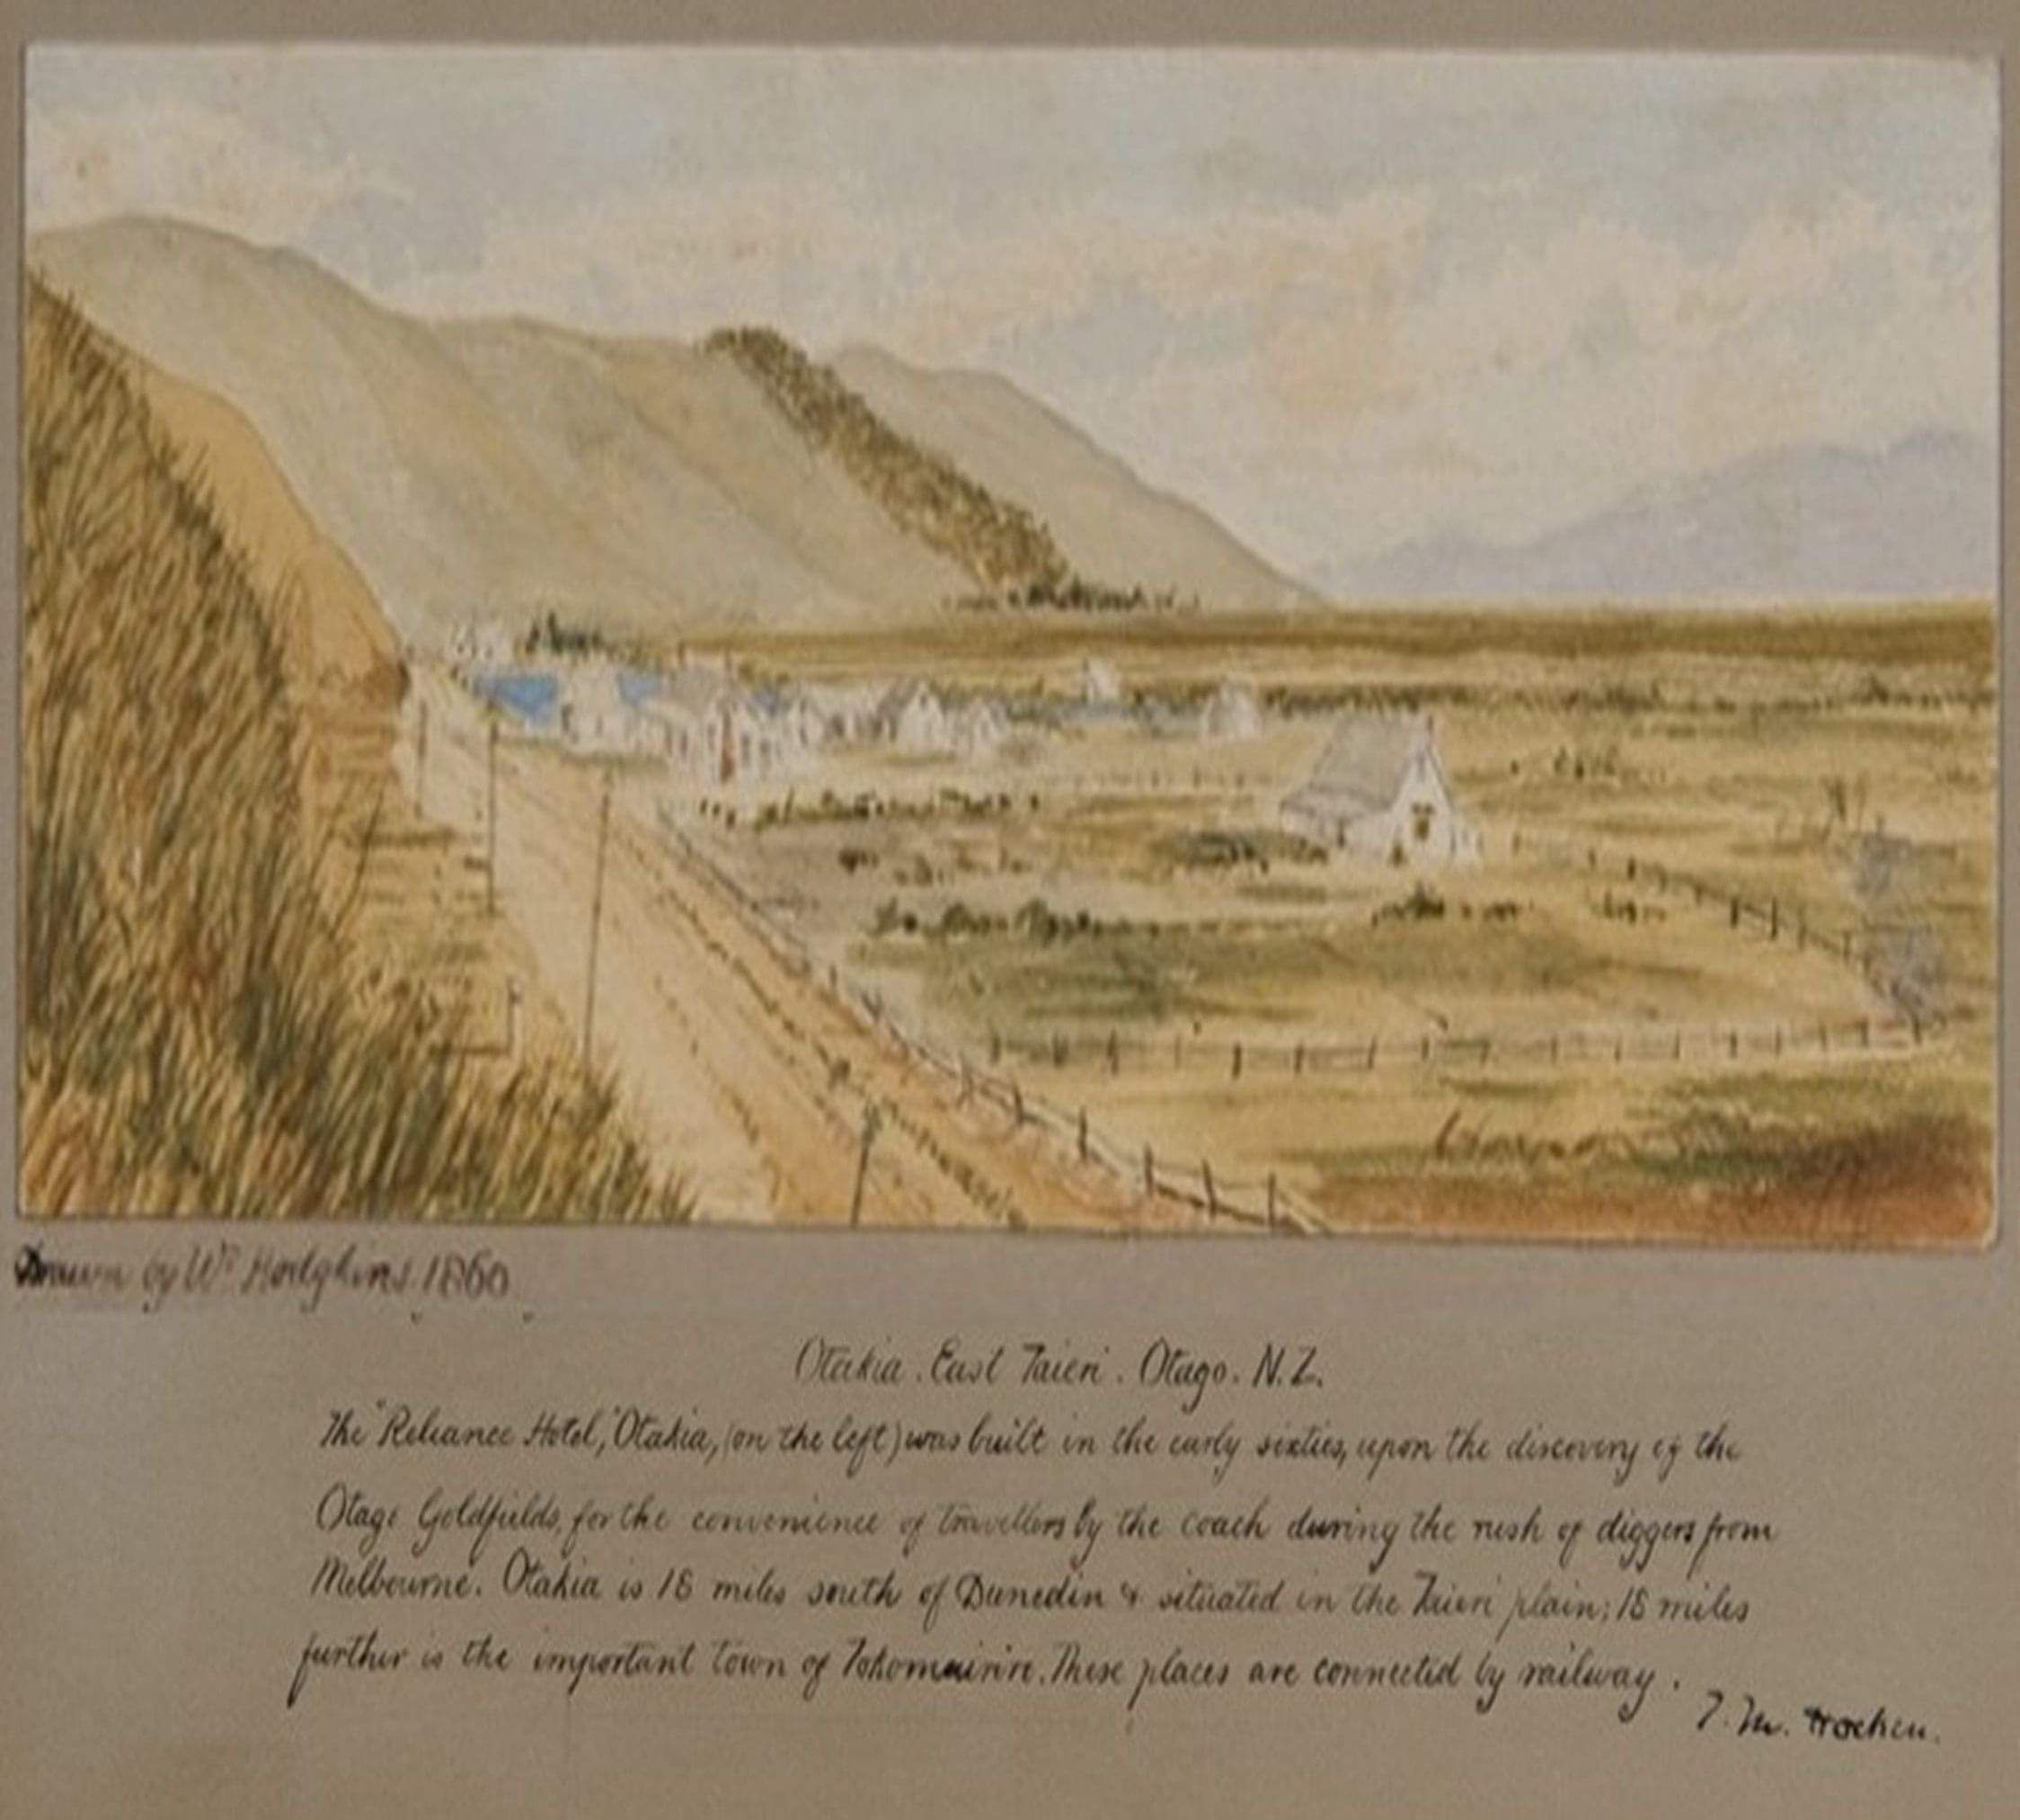 Drawn by Wm Hodgkins 1860
Otakia. East Taieri. Otago. N.Z.
The "Reliance Hotel," Otakia, (on the left) was built in the early sixties, upon the discovery of the
Otago Goldfields, for the convenience of travellers by the coach during the rush of diggers from
Melbourne. Otakia is 18 miles south of Dunedin & situated in the Taieri plain; 18 miles
further is the important town of Tokomairiro. These places are connected by railway.
T. M. Hocken.